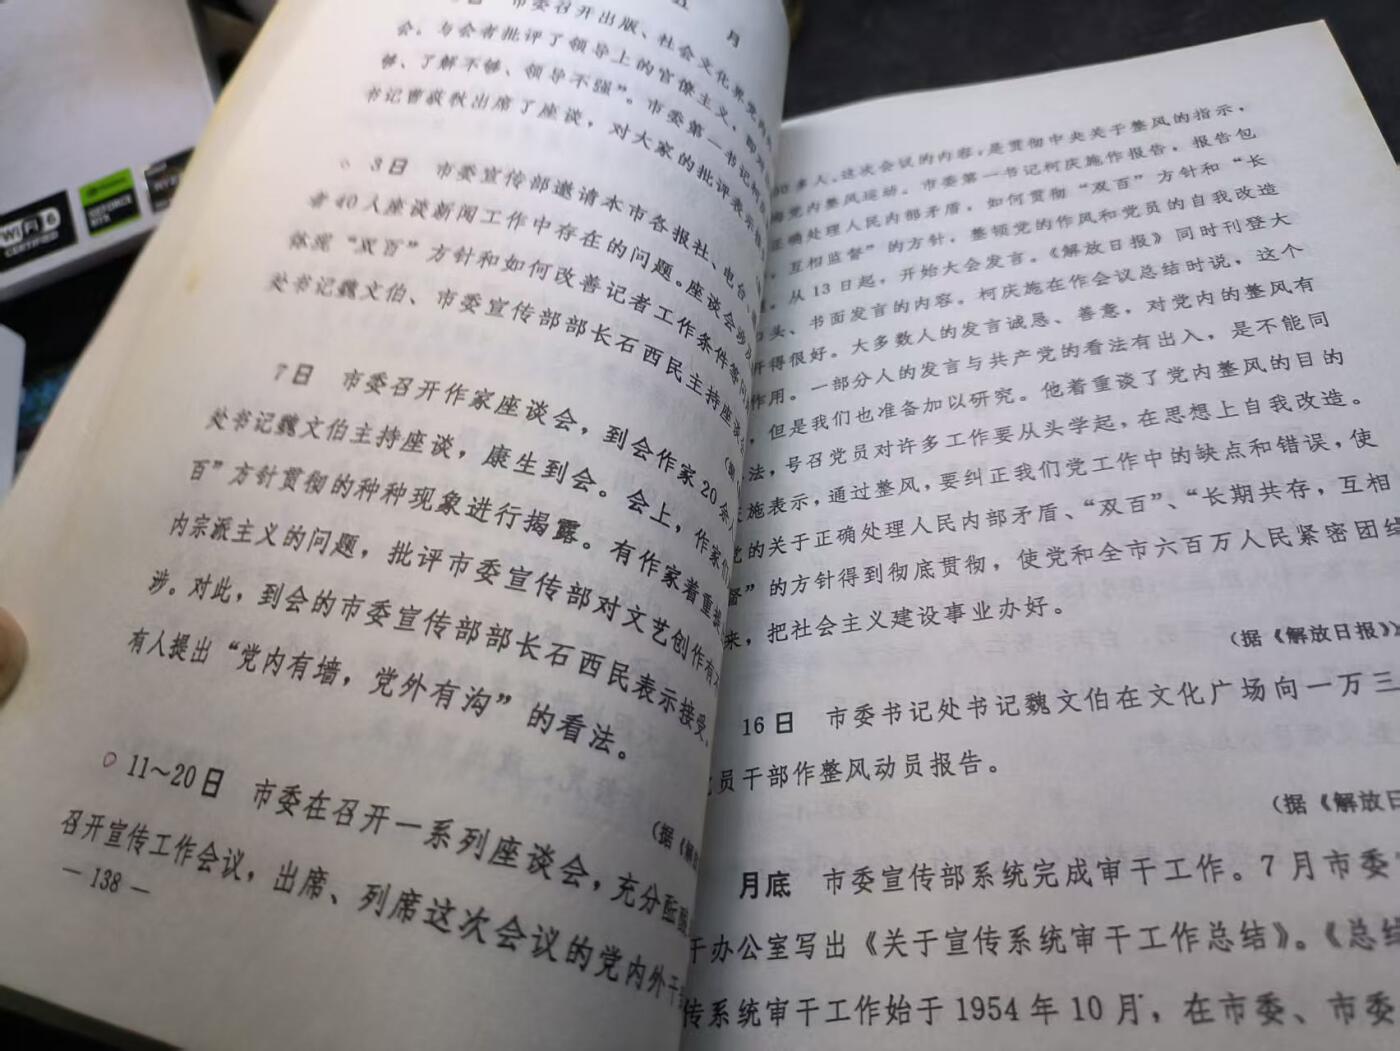 五 月
日 市委召开出版、社会文化界党内
会。与会者批评了领导上的官僚主义,即
够、了解不够、领导不强”。市委第一书记柯
书记曹荻秋出席了座谈,对大家的批评表示
3日 市委宣传部邀请本市各报社、电台、
者40人座谈新闻工作中存在的问题。座谈会涉及
体现“双百”方针和如何改善记者工作条件等问
处书记魏文伯、市委宣传部部长石西民主持座谈
7日 市委召开作家座谈会,到会作家20余人
处书记魏文伯主持座谈,康生到会。会上,作家们
百”方针贯彻的种种现象进行揭露。有作家着重提
内宗派主义的问题,批评市委宣传部对文艺创作有
涉。对此,到会的市委宣传部部长石西民表示接受。
有人提出“党内有墙,党外有沟”的看法。
(据《解
11~20日 市委在召开一系列座谈会,充分酝酿
召开宣传工作会议,出席、列席这次会议的党内外干
— 138 —
00多人。这次会议的内容,是贯彻中央关于整风的指示,
党内整风运动。市委第一书记柯庆施作报告,报告包
正确处理人民内部矛盾,如何贯彻“双百”方针和“长
,互相监督”的方针,整顿党的作风和党员的自我改造
。从13日起,开始大会发言。《解放日报》同时刊登大
口头、书面发言的内容。柯庆施在作会议总结时说,这个
开得很好。大多数人的发言诚恳、善意,对党内的整风有
作用。一部分人的发言与共产党的看法有出入,是不能同
,但是我们也准备加以研究。他着重谈了党内整风的目的
法,号召党员对许多工作要从头学起,在思想上自我改造。
施表示,通过整风,要纠正我们党工作中的缺点和错误,使
党的关于正确处理人民内部矛盾、“双百”、“长期共存,互相
督”的方针得到彻底贯彻,使党和全市六百万人民紧密团结
来,把社会主义建设事业办好。
(据《解放日报》)
16日 市委书记处书记魏文伯在文化广场向一万三
员干部作整风动员报告。
(据《解放日
月底 市委宣传部系统完成审干工作。7月市委
干办公室写出《关于宣传系统审干工作总结》。《总结
传系统审干工作始于1954年10月,在市委、市委
WiFi 6
CERTIFIED
GEFORCE
RTX